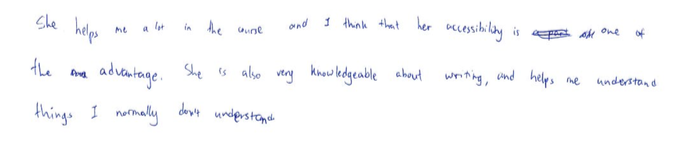 She helps me a lot in the course and I think that her accessibility is one of
the advantage. She is also very knowledgeable about writing, and helps me understand
things I normally don't understand